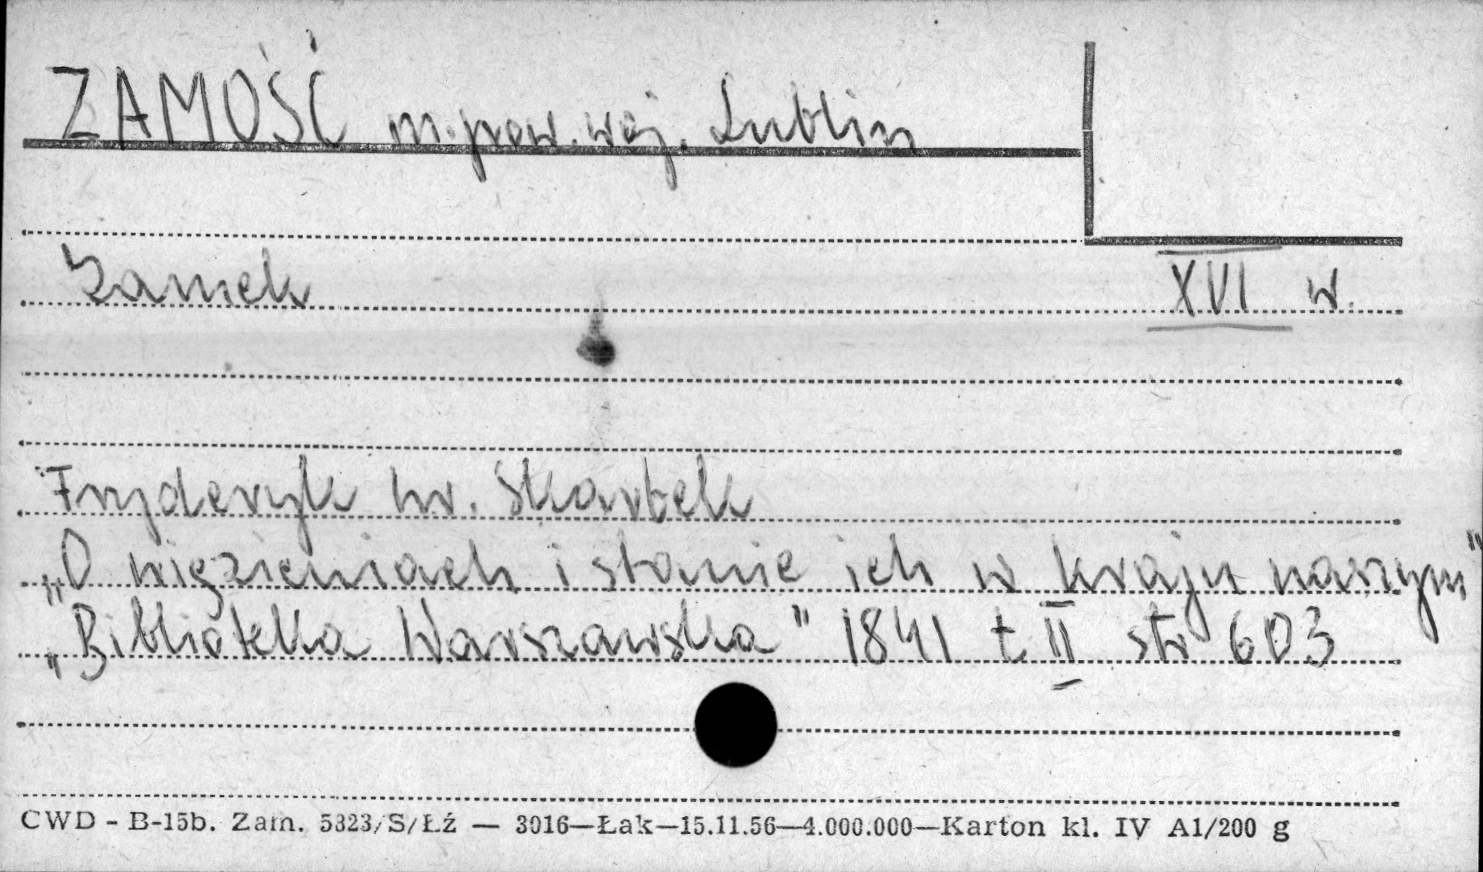 ZAMOŚĆ m. pow. woj. Lublin
Zamek XVI w.
Fryderyk hr. Skarbek
„O więzieniach i stanie ich w kraju naszym"
„Biblioteka Warszawska" 1841 t II str 603
CWD - B-15b. Zam. 5323/S/Łź — 3016—Łak—15.11.56—4.000.000—Karton kl. IV A1/200 g